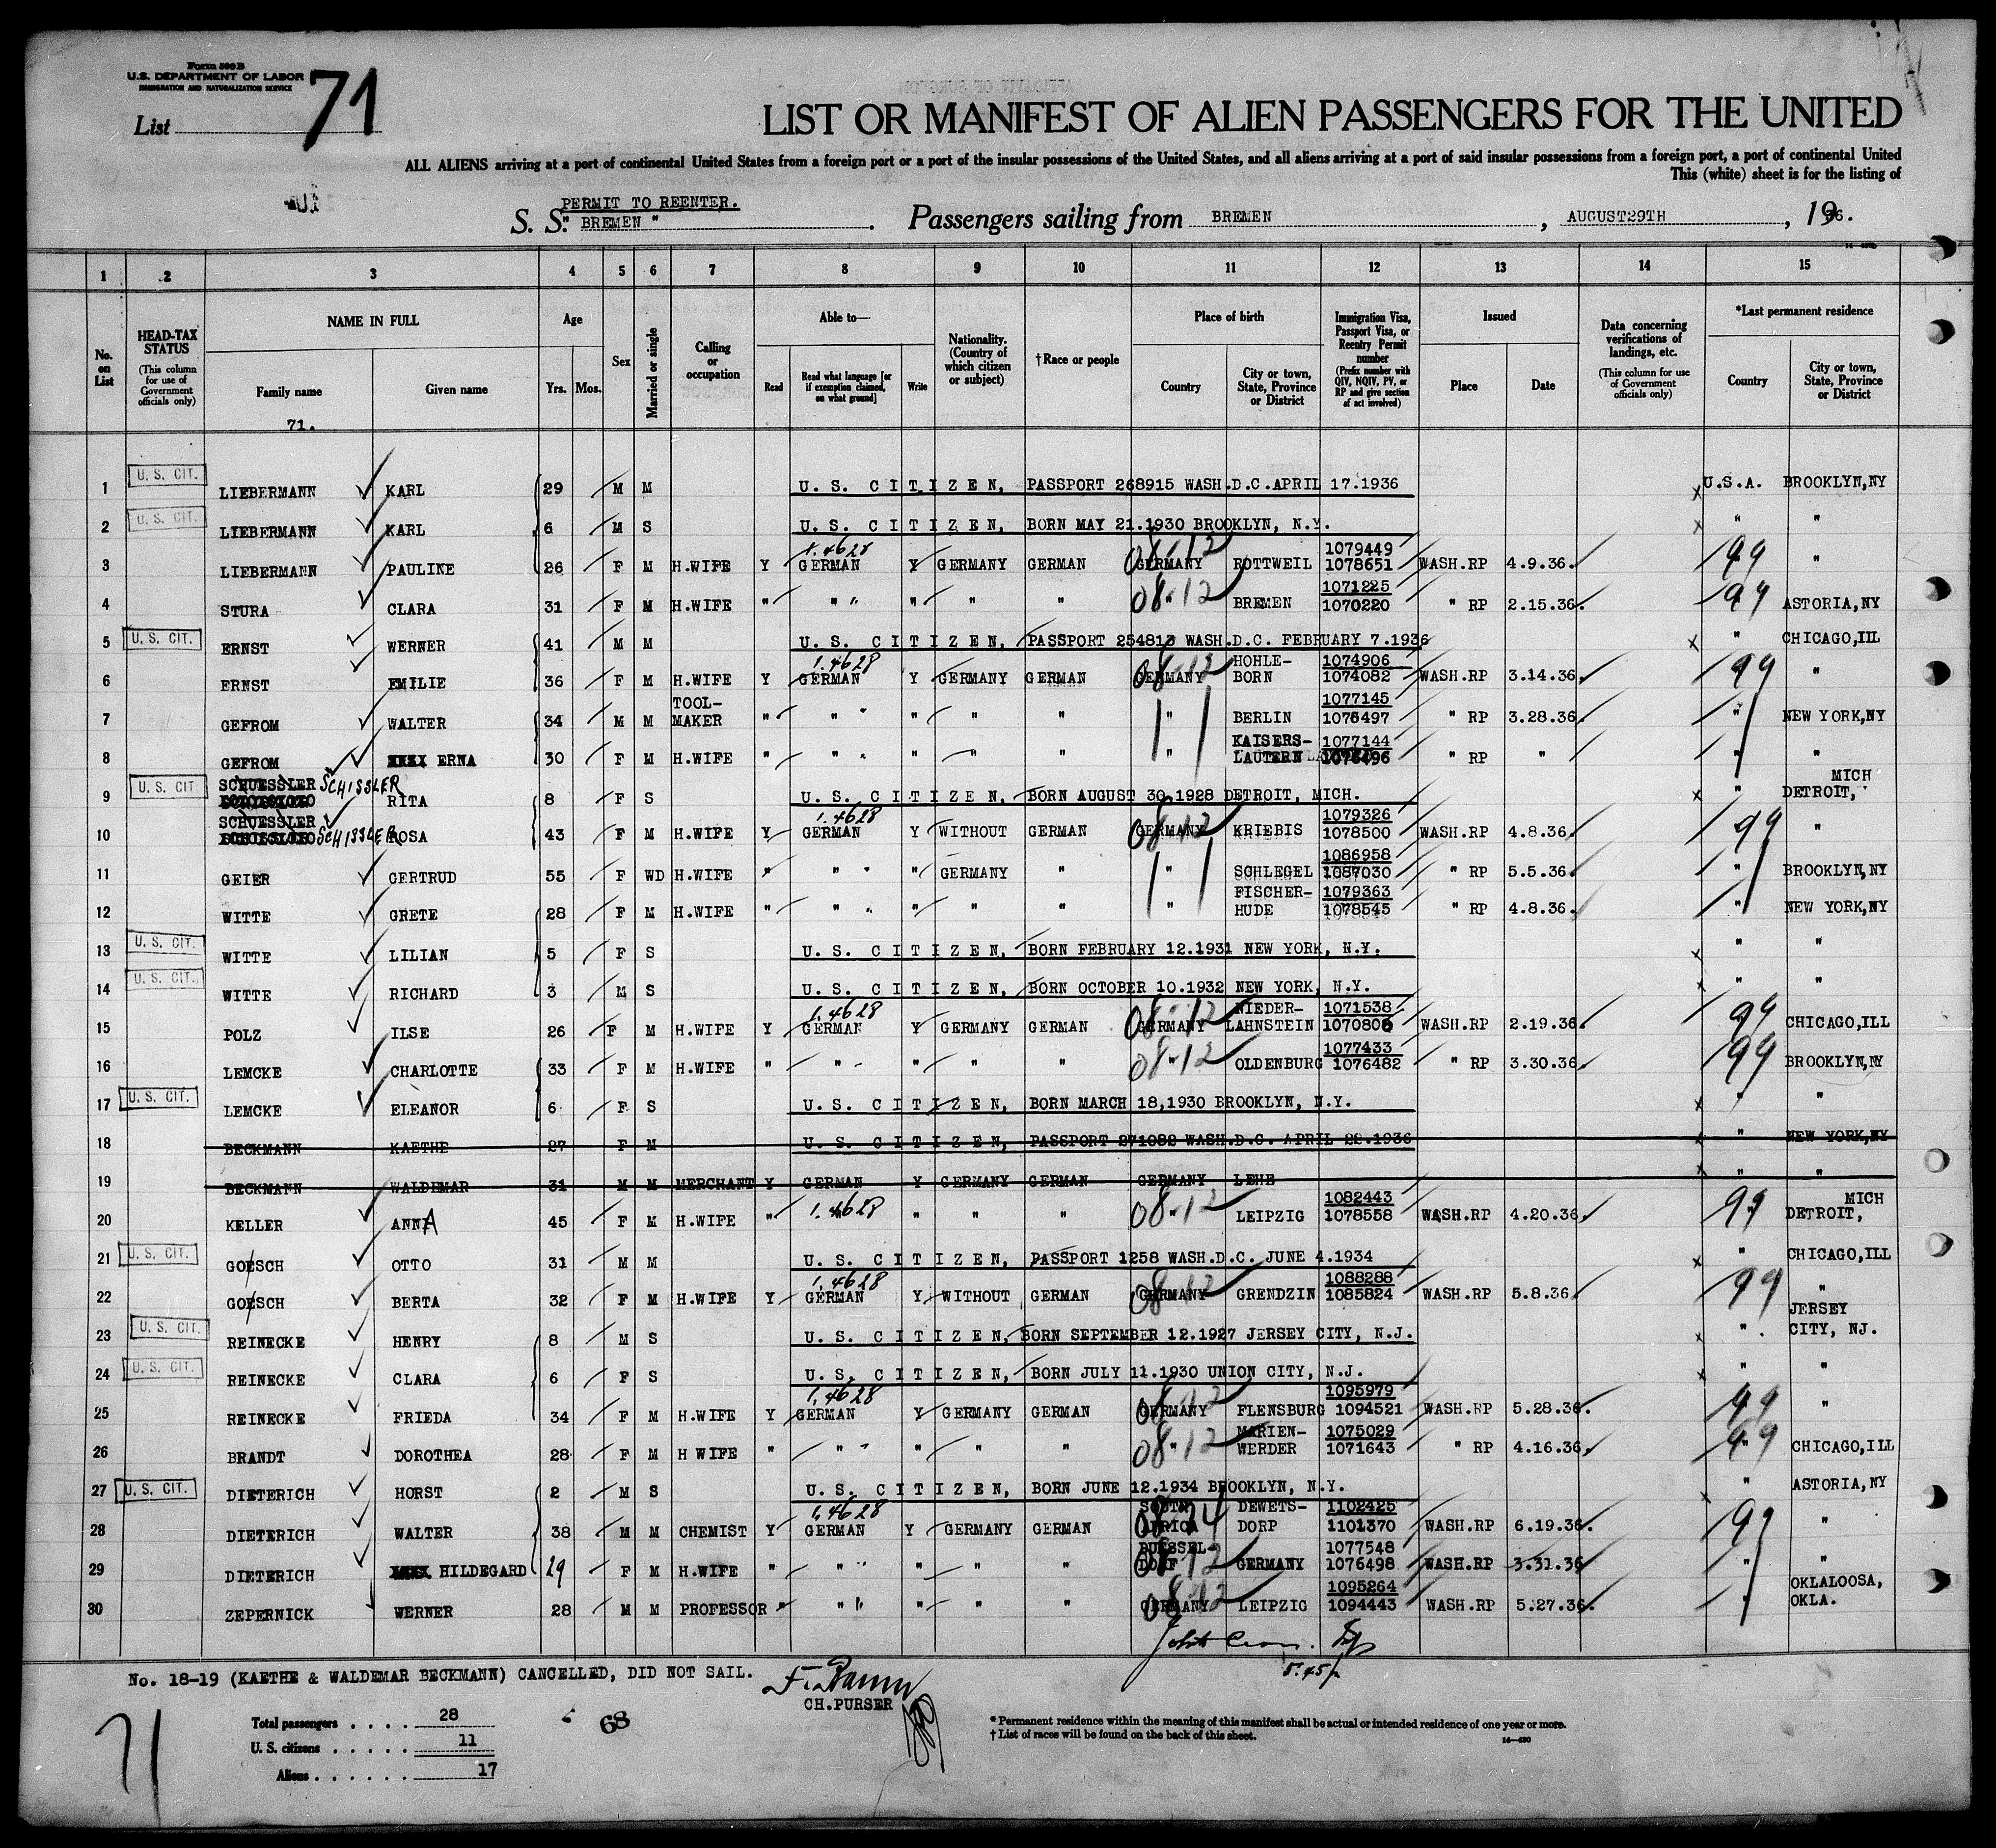 Form 500 B
U.S. DEPARTMENT OF LABOR
IMMIGRATION AND NATURALIZATION SERVICE
List 71
LIST OR MANIFEST OF ALIEN PASSENGERS FOR THE UNITED
ALL ALIENS arriving at a port of continental United States from a foreign port or a port of the insular possessions of the United States, and all aliens arriving at a port of said insular possessions from a foreign port, a port of continental United
This (white) sheet is for the listing of
PERMIT TO REENTER.
S. S. "BREMEN" Passengers sailing from BREMEN, AUGUST29TH, 1936.
1 2 3 4 5 6 7 8 9 10 11 12 13 14 15
No. on List
HEAD-TAX STATUS (This column for use of Government officials only)
NAME IN FULL Family name Given name
Age Yrs. Mos.
Sex
Married or single
Calling or occupation
Able to— Read Read what language [or if exemption claimed, on what ground] Write
Nationality. (Country of which citizen or subject)
†Race or people
Place of birth Country City or town, State, Province or District
Immigration Visa, Passport Visa, or Reentry Permit number (Prefix number with QIV, NQIV, PV, or RP and give section of act involved)
Issued Place Date
Data concerning verifications of landings, etc. (This column for use of Government officials only)
*Last permanent residence Country City or town, State, Province or District
71.
1 U. S. CIT. LIEBERMANN KARL 29 M M U. S. CITIZEN, PASSPORT 268915 WASH.D.C.APRIL 17.1936 U.S.A. BROOKLYN,NY
2 U. S. CIT. LIEBERMANN KARL 6 M S U. S. CITIZEN, BORN MAY 21.1930 BROOKLYN, N.Y. " "
3 LIEBERMANN PAULINE 26 F M H.WIFE Y 1.4628 GERMAN Y GERMANY GERMAN GERMANY 08-12 ROTTWEIL 1079449 1078651 WASH.RP 4.9.36. 99 "
4 STURA CLARA 31 F M H.WIFE " " " " " " " 08-12 BREMEN 1071225 1070220 " RP 2.15.36. 99 ASTORIA,NY
5 U. S. CIT. ERNST WERNER 41 M M U. S. CITIZEN, PASSPORT 254813 WASH.D.C. FEBRUARY 7.1936 " CHICAGO,ILL
6 ERNST EMILIE 36 F M H.WIFE Y 1.4628 GERMAN Y GERMANY GERMAN GERMANY 08-12 HOHLE-BORN 1074906 1074082 WASH.RP 3.14.36. 99 "
7 GEFROM WALTER 34 M M TOOL-MAKER " " " " " " " BERLIN 1077145 1076497 " RP 3.28.36. " NEW YORK,NY
8 GEFROM ERNA 30 F M H.WIFE " " " " " " " KAISERS-LAUTERN 1077144 1076496 " RP " " "
9 U. S. CIT. SCHUESSLER SCHISSLER RITA 8 F S U. S. CITIZEN, BORN AUGUST 30.1928 DETROIT, MICH. " DETROIT, MICH
10 SCHUESSLER SCHISSLER ROSA 43 F M H.WIFE Y 1.4628 GERMAN Y WITHOUT GERMAN GERMANY 08-12 KRIEBIS 1079326 1078500 WASH.RP 4.8.36. 99 "
11 GEIER GERTRUD 55 F WD H.WIFE " " " " GERMANY " " SCHLEGEL 1086958 1087030 " RP 5.5.36. " BROOKLYN,NY
12 WITTE GRETE 28 F M H.WIFE " " " " " " " FISCHER-HUDE 1079363 1078545 " RP 4.8.36. " NEW YORK,NY
13 U. S. CIT. WITTE LILIAN 5 F S U. S. CITIZEN, BORN FEBRUARY 12.1931 NEW YORK, N.Y. " "
14 U. S. CIT. WITTE RICHARD 3 M S U. S. CITIZEN, BORN OCTOBER 10.1932 NEW YORK, N.Y. " "
15 POLZ ILSE 26 F M H.WIFE Y 1.4628 GERMAN Y GERMANY GERMAN GERMANY 08-12 NIEDER-LAHNSTEIN 1071538 1070808 WASH.RP 2.19.36. 99 CHICAGO,ILL
16 LEMCKE CHARLOTTE 33 F M H.WIFE " " " " " " " 08-12 OLDENBURG 1077433 1076482 " RP 3.30.36. 99 BROOKLYN,NY
17 U. S. CIT. LEMCKE ELEANOR 6 F S U. S. CITIZEN, BORN MARCH 18,1930 BROOKLYN, N.Y. " "
18 BECKMANN KAETHE 27 F M U. S. CITIZEN, PASSPORT 271082 WASH.D.C. APRIL 22.1936 " NEW YORK,NY
19 BECKMANN WALDEMAR 31 M M MERCHANT Y GERMAN Y GERMANY GERMAN GERMANY LEHE " "
20 KELLER ANNA 45 F M H.WIFE " 1.4628 " " " " 08-12 LEIPZIG 1082443 1078558 WASH.RP 4.20.36. 99 DETROIT, MICH
21 U. S. CIT. GOESCH OTTO 31 M M U. S. CITIZEN, PASSPORT 1258 WASH.D.C. JUNE 4.1934 " CHICAGO,ILL
22 GOESCH BERTA 32 F M H.WIFE Y 1.4628 GERMAN Y WITHOUT GERMAN GERMANY 08-12 GRENDZIN 1088288 1085824 WASH.RP 5.8.36. 99 "
23 U. S. CIT. REINECKE HENRY 8 M S U. S. CITIZEN, BORN SEPTEMBER 12.1927 JERSEY CITY, N.J. " JERSEY CITY, NJ.
24 U. S. CIT. REINECKE CLARA 6 F S U. S. CITIZEN, BORN JULY 11.1930 UNION CITY, N.J. " "
25 REINECKE FRIEDA 34 F M H.WIFE Y 1.4628 GERMAN Y GERMANY GERMAN GERMANY 08-12 FLENSBURG 1095979 1094521 WASH.RP 5.28.36. 99 "
26 BRANDT DOROTHEA 28 F M H WIFE " " " " " " " 08-12 MARIEN-WERDER 1075029 1071643 " RP 4.16.36. 99 CHICAGO,ILL
27 U. S. CIT. DIETERICH HORST 2 M S U. S. CITIZEN, BORN JUNE 12.1934 BROOKLYN, N.Y. " ASTORIA,NY
28 DIETERICH WALTER 38 M M CHEMIST Y 1.4628 GERMAN Y GERMANY GERMAN SOUTH AFRICA DEWETS-DORP 1102425 1101370 WASH.RP 6.19.36. 99 "
29 DIETERICH HILDEGARD 29 F M H.WIFE " " " " " " GERMANY 1077548 1076498 WASH.RP 3.31.36 " "
30 ZEPERNICK WERNER 28 M M PROFESSOR " " " " " " GERMANY 08-12 LEIPZIG 1095264 1094443 WASH.RP 5.27.36. " OKLALOOSA, OKLA.
No. 18-19 (KAETHE & WALDEMAR BECKMANN) CANCELLED, DID NOT SAIL.
CH.PURSER
71
Total passengers . . . . 28
U. S. citizens . . . . . 11
Aliens . . . . . . 17
68
*Permanent residence within the meaning of this manifest shall be actual or intended residence of one year or more.
†List of races will be found on the back of this sheet.